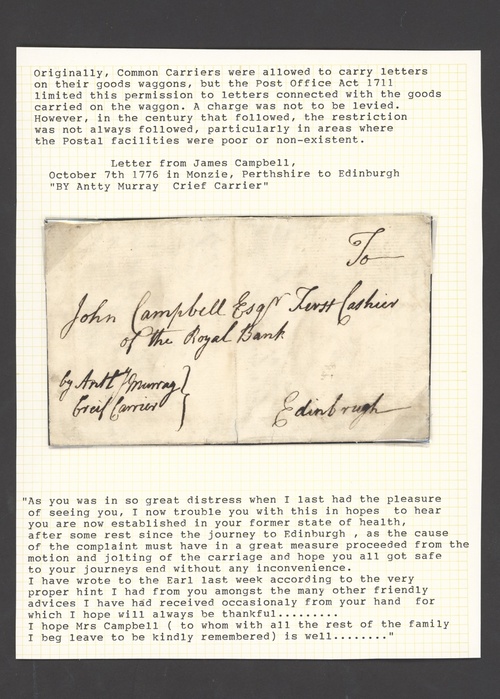 Originally, Common Carriers were allowed to carry letters
on their goods waggons, but the Post Office Act 1711
limited this permission to letters connected with the goods
carried on the waggon. A charge was not to be levied.
However, in the century that followed, the restriction
was not always followed, particularly in areas where
the Postal facilities were poor or non-existent.
Letter from James Campbell,
October 7th 1776 in Monzie, Perthshire to Edinburgh
"BY Antty Murray Crief Carrier"
To
John Campbell Esqr First Cashier
of the Royal Bank
by Antty Murray
Creif Carrier
Edinbrugh
"As you was in so great distress when I last had the pleasure
of seeing you, I now trouble you with this in hopes to hear
you are now established in your former state of health,
after some rest since the journey to Edinburgh , as the cause
of the complaint must have in a great measure proceeded from the
motion and jolting of the carriage and hope you all got safe
to your journeys end without any inconvenience.
I have wrote to the Earl last week according to the very
proper hint I had from you amongst the many other friendly
advices I have had received occasionaly from your hand for
which I hope will always be thankful.........
I hope Mrs Campbell ( to whom with all the rest of the family
I beg leave to be kindly remembered) is well........"